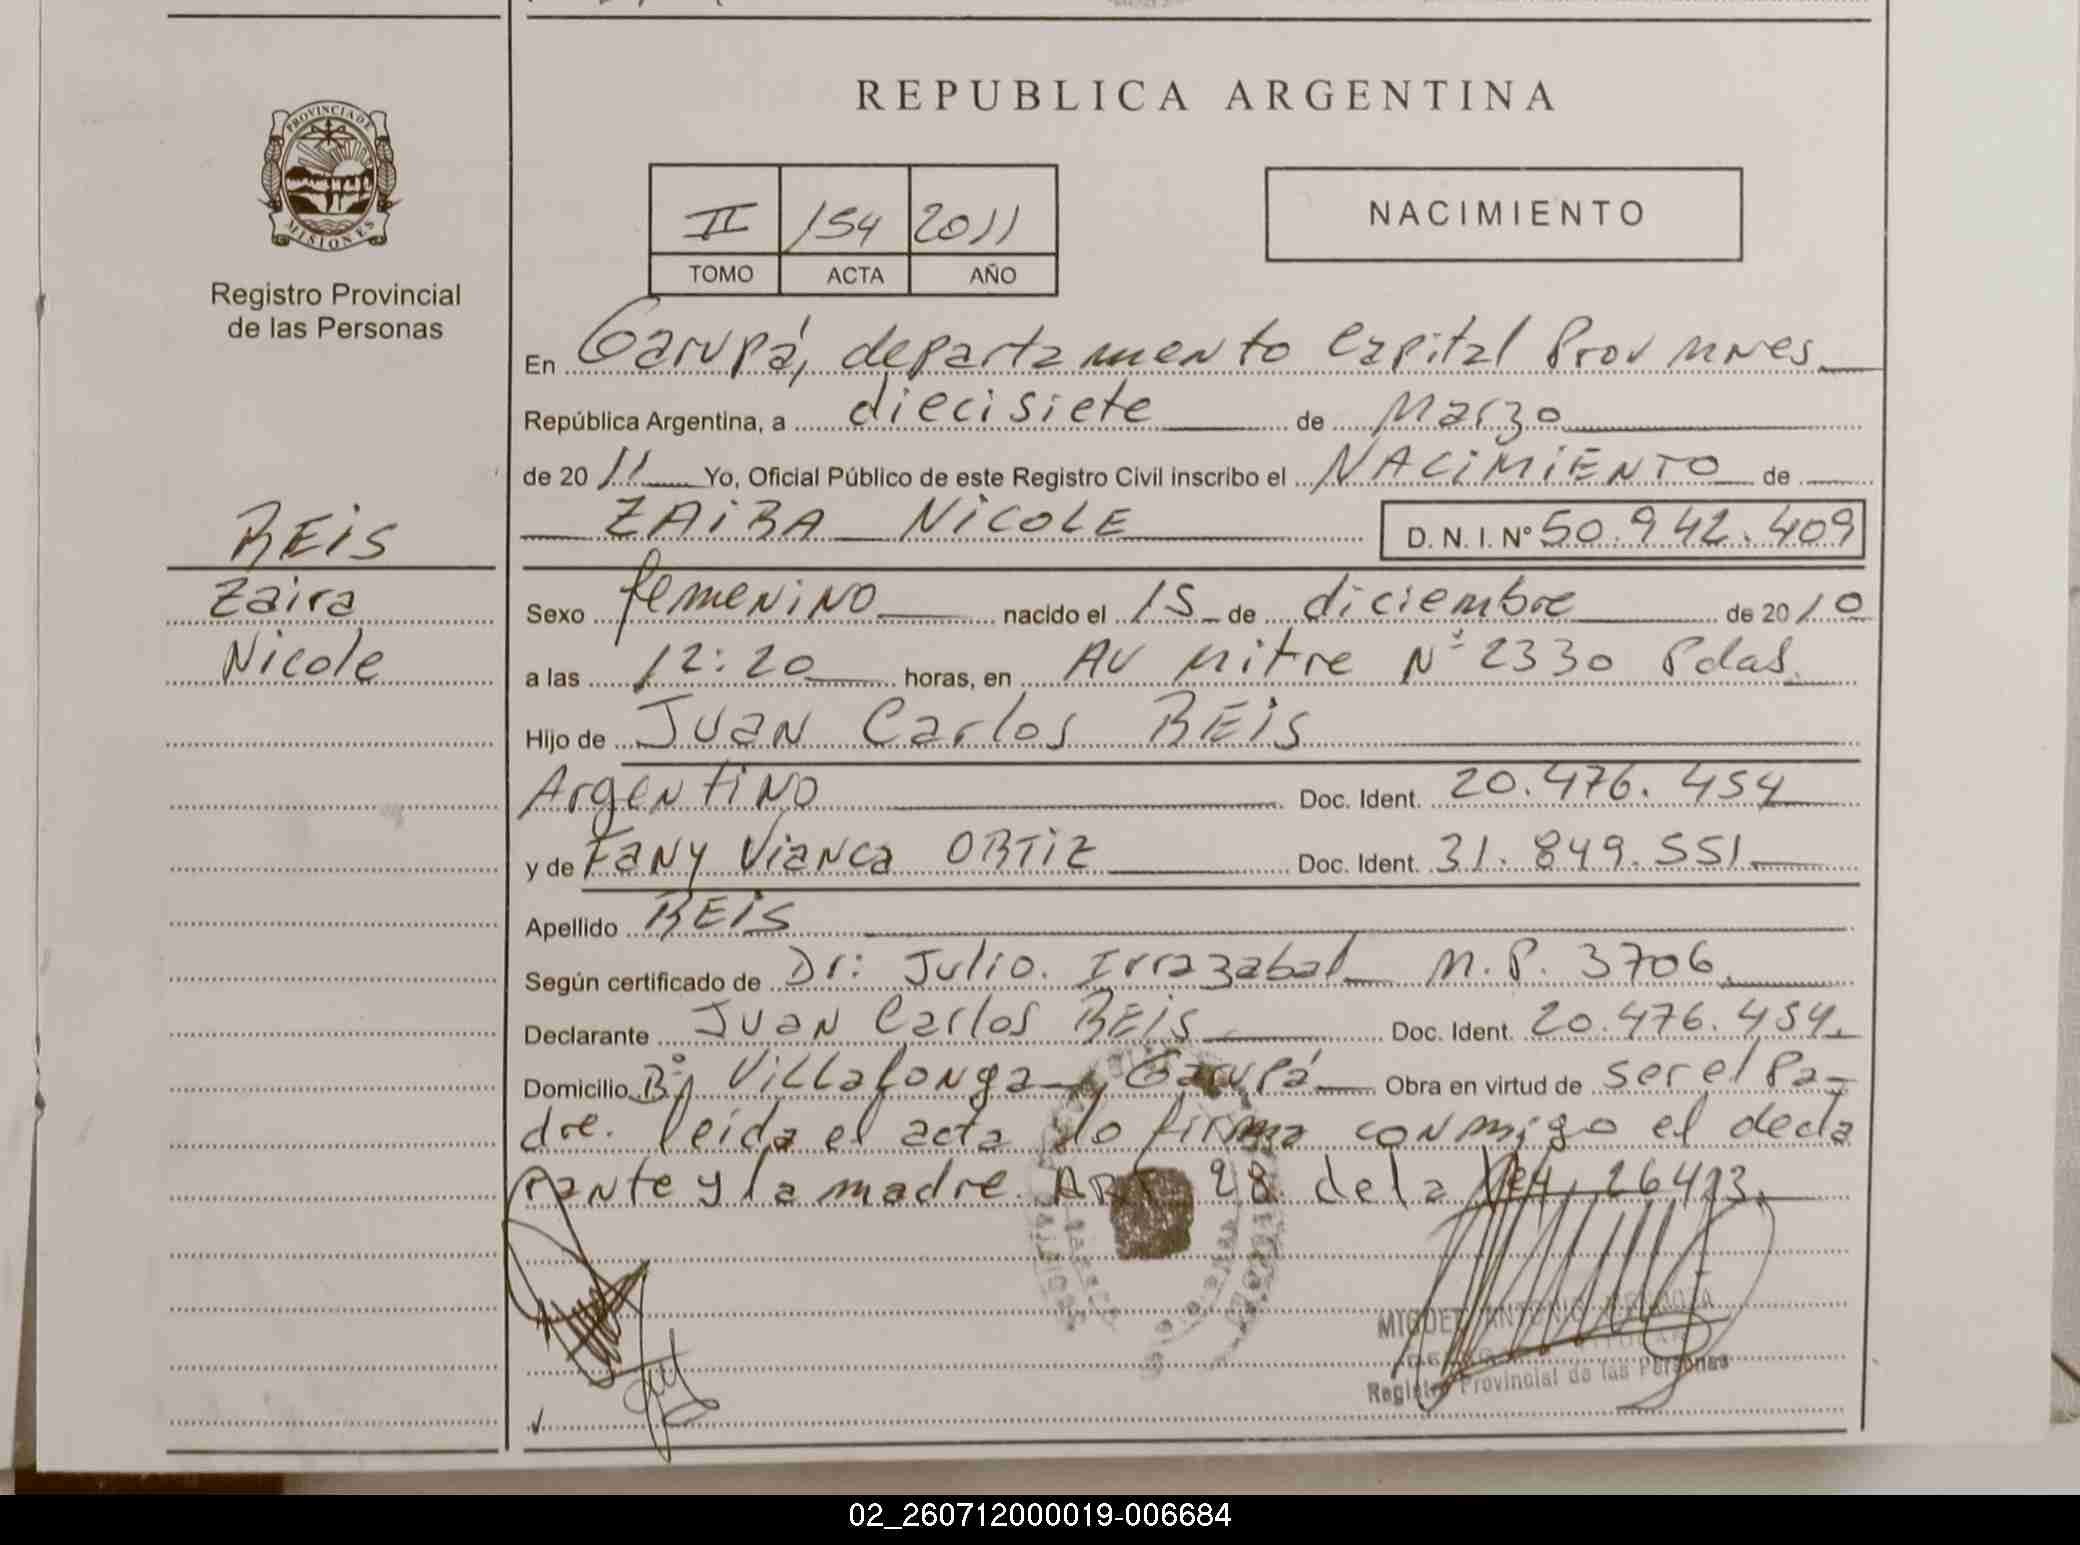 PROVINCIA DE
MISIONES
Registro Provincial
de las Personas
REIS
Zaira
Nicole
REPUBLICA ARGENTINA
II 154 2011
TOMO ACTA AÑO
NACIMIENTO
En Garupá, departamento Capital Prov Mnes
República Argentina, a diecisiete de Marzo
de 2011 Yo, Oficial Público de este Registro Civil inscribo el NACIMIENTO de
ZAIRA NICOLE D. N. I. Nº 50.942.409
Sexo femenino nacido el 15 de diciembre de 2010
a las 12:20 horas, en AV Mitre Nº 2330 Pdas.
Hijo de Juan Carlos REIS
Argentino Doc. Ident. 20.476.454
y de Fany Vianca ORTIZ Doc. Ident. 31.849.551
Apellido REIS
Según certificado de Dr: Julio. Irrazabal M.P. 3706.
Declarante Juan Carlos REIS Doc. Ident. 20.476.454.
Domicilio Bº Villalonga Garupá Obra en virtud de ser el Pa-
dre. leída el acta lo firma conmigo el decla
rante y la madre. ART 28 de la Ley 26413.
MIGUEL ANTONIO
Registro Provincial de las Personas
02_260712000019-006684